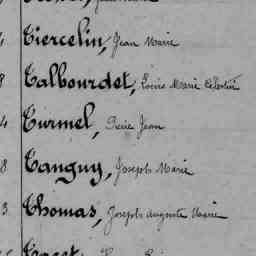 Tiercelin, Jean Marie
8 Talbourdet, Louis Marie Célestin
4 Turmel, Pierre Jean
8 Tanguy, Joseph Marie
3 Thomas, Joseph Auguste Marie